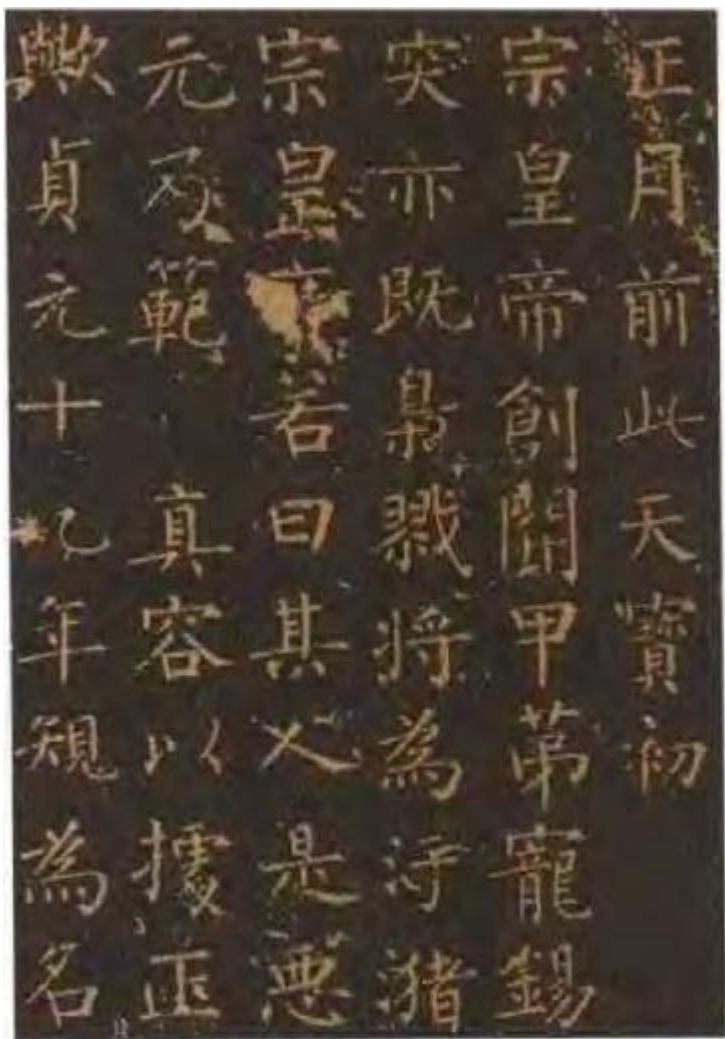 正月前此天寶初
宗皇帝創開甲第寵錫
突亦既梟戮將為汙豬
宗皇帝若曰其人是惡
元及範 真容以據正
歟貞元十九年規為名